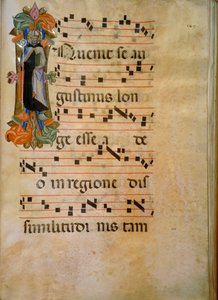 Nuenit se au
gustinus lon
ge esse a de
o in regione dis
similitudinis tam